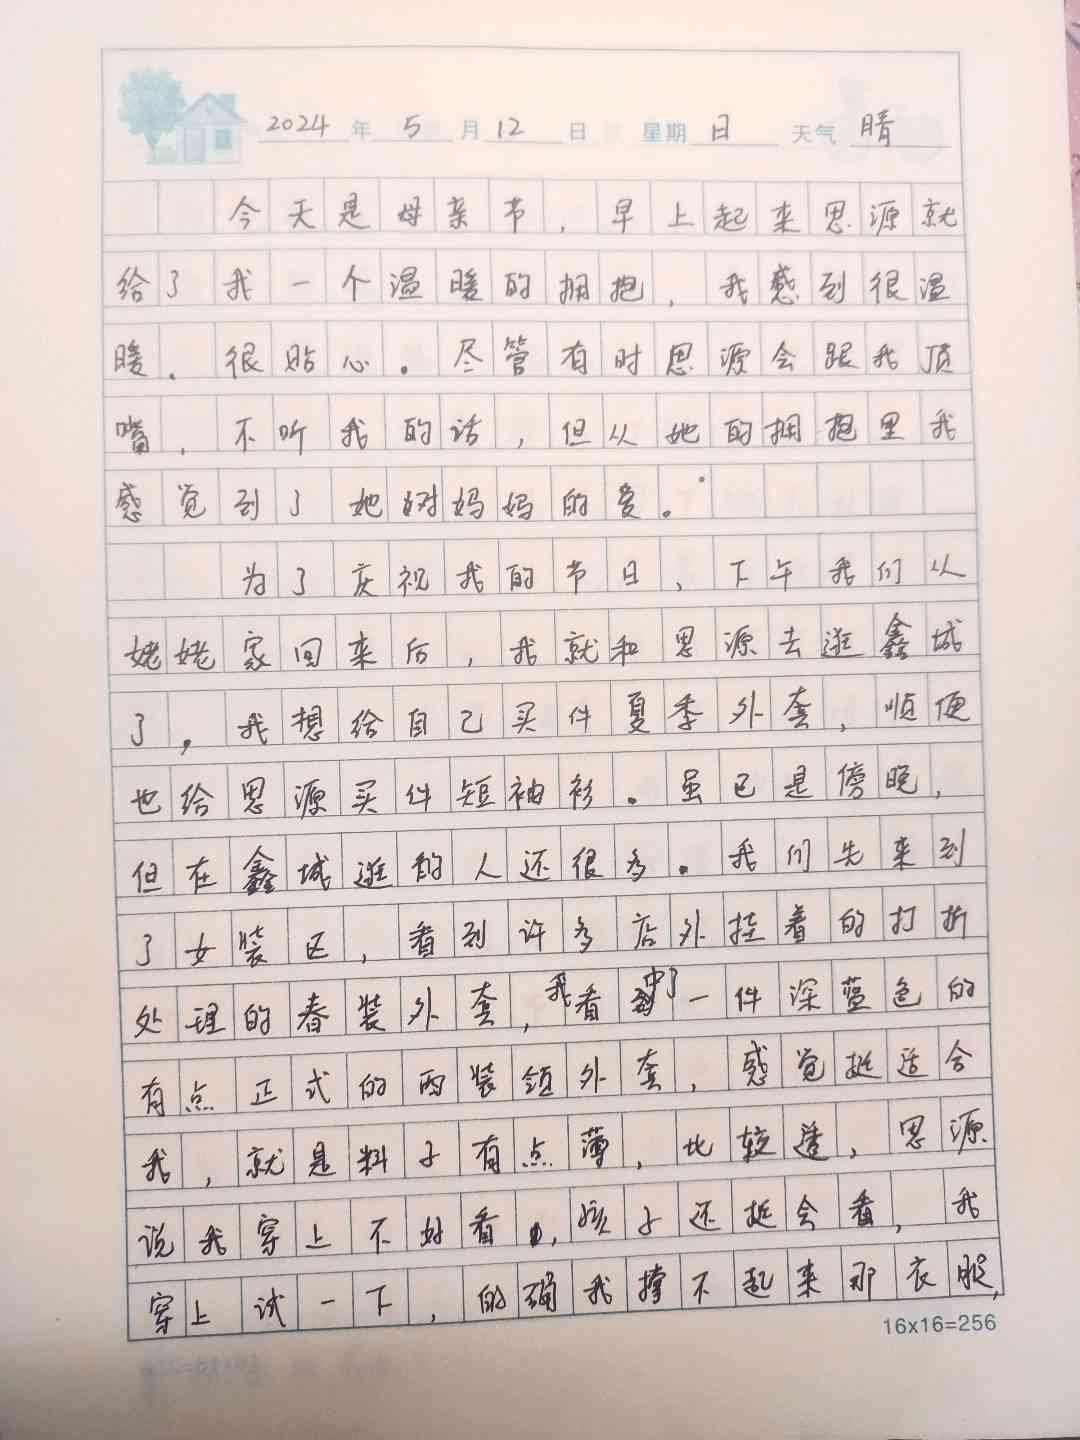 2024年5月12日 星期日 天气晴
今天是母亲节，早上起来思源就
给了我一个温暖的拥抱，我感到很温
暖.很贴心。尽管有时思源会跟我顶
嘴，不听我的话，但从她的拥抱里我
感觉到了她对妈妈的爱。
为了庆祝我的节日，下午我们从
姥姥家回来后，我就和思源去逛鑫城
了，我想给自己买件夏季外套，顺便
也给思源买件短袖衫。虽已是傍晚，
但在鑫城逛的人还很多。我们先来到
了女装区，看到许多店外挂着的打折
处理的春装外套，我看中了一件深蓝色的
有点正式的西装领外套，感觉挺适合
我，就是料子有点薄，比较透，思源
说我穿上不好看，孩子还挺会看，我
穿上试一下，的确我撑不起来那衣服，
16x16=256